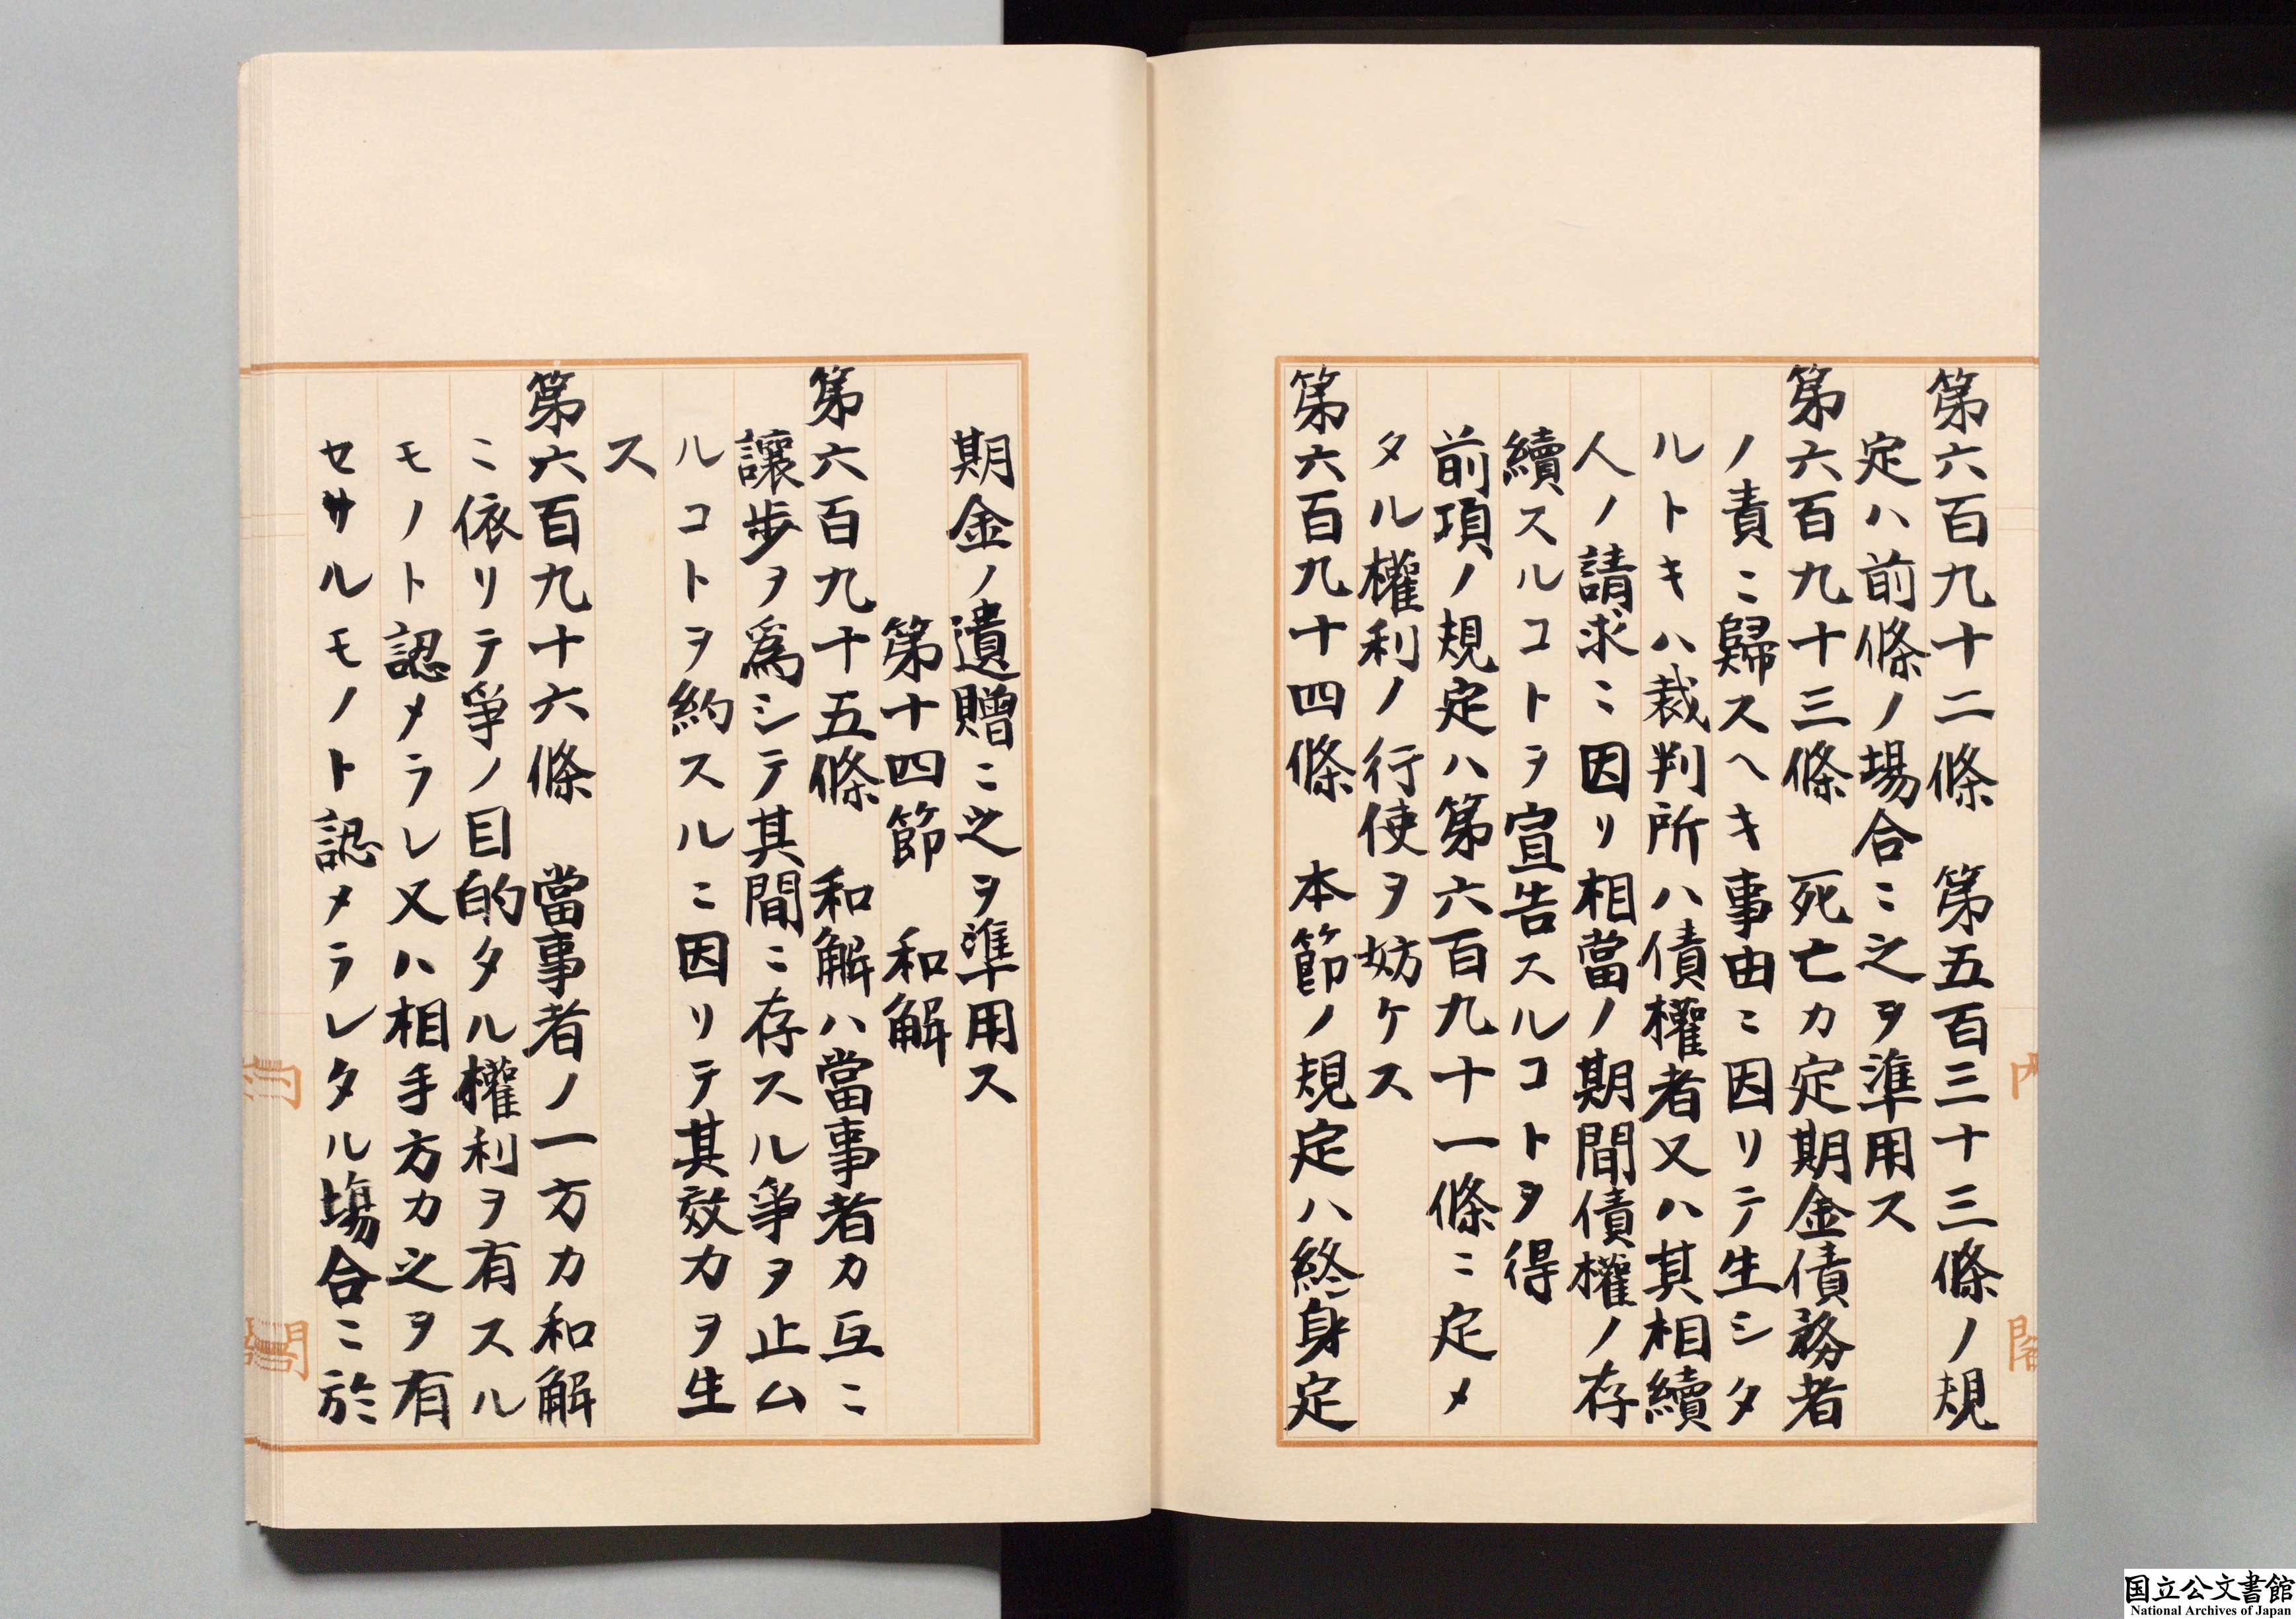 第六百九十二條　第五百三十三條ノ規
定ハ前條ノ場合ニ之ヲ準用ス
第六百九十三條　死亡カ定期金債務者
ノ責ニ歸スヘキ事由ニ因リテ生シタ
ルトキハ裁判所ハ債權者又ハ其相續
人ノ請求ニ因リ相當ノ期間債權ノ存
續スルコトヲ宣告スルコトヲ得
前項ノ規定ハ第六百九十一條ニ定メ
タル權利ノ行使ヲ妨ケス
第六百九十四條　本節ノ規定ハ終身定
期金ノ遺贈ニ之ヲ準用ス
第十四節　和解
第六百九十五條　和解ハ當事者カ互ニ
讓歩ヲ爲シテ其間ニ存スル爭ヲ止ム
ルコトヲ約スルニ因リテ其效力ヲ生
ス
第六百九十六條　當事者ノ一方カ和解
ニ依リテ爭ノ目的タル權利ヲ有スル
モノト認メラレ又ハ相手方カ之ヲ有
セサルモノト認メラレタル場合ニ於
内閣
国立公文書館
National Archives of Japan